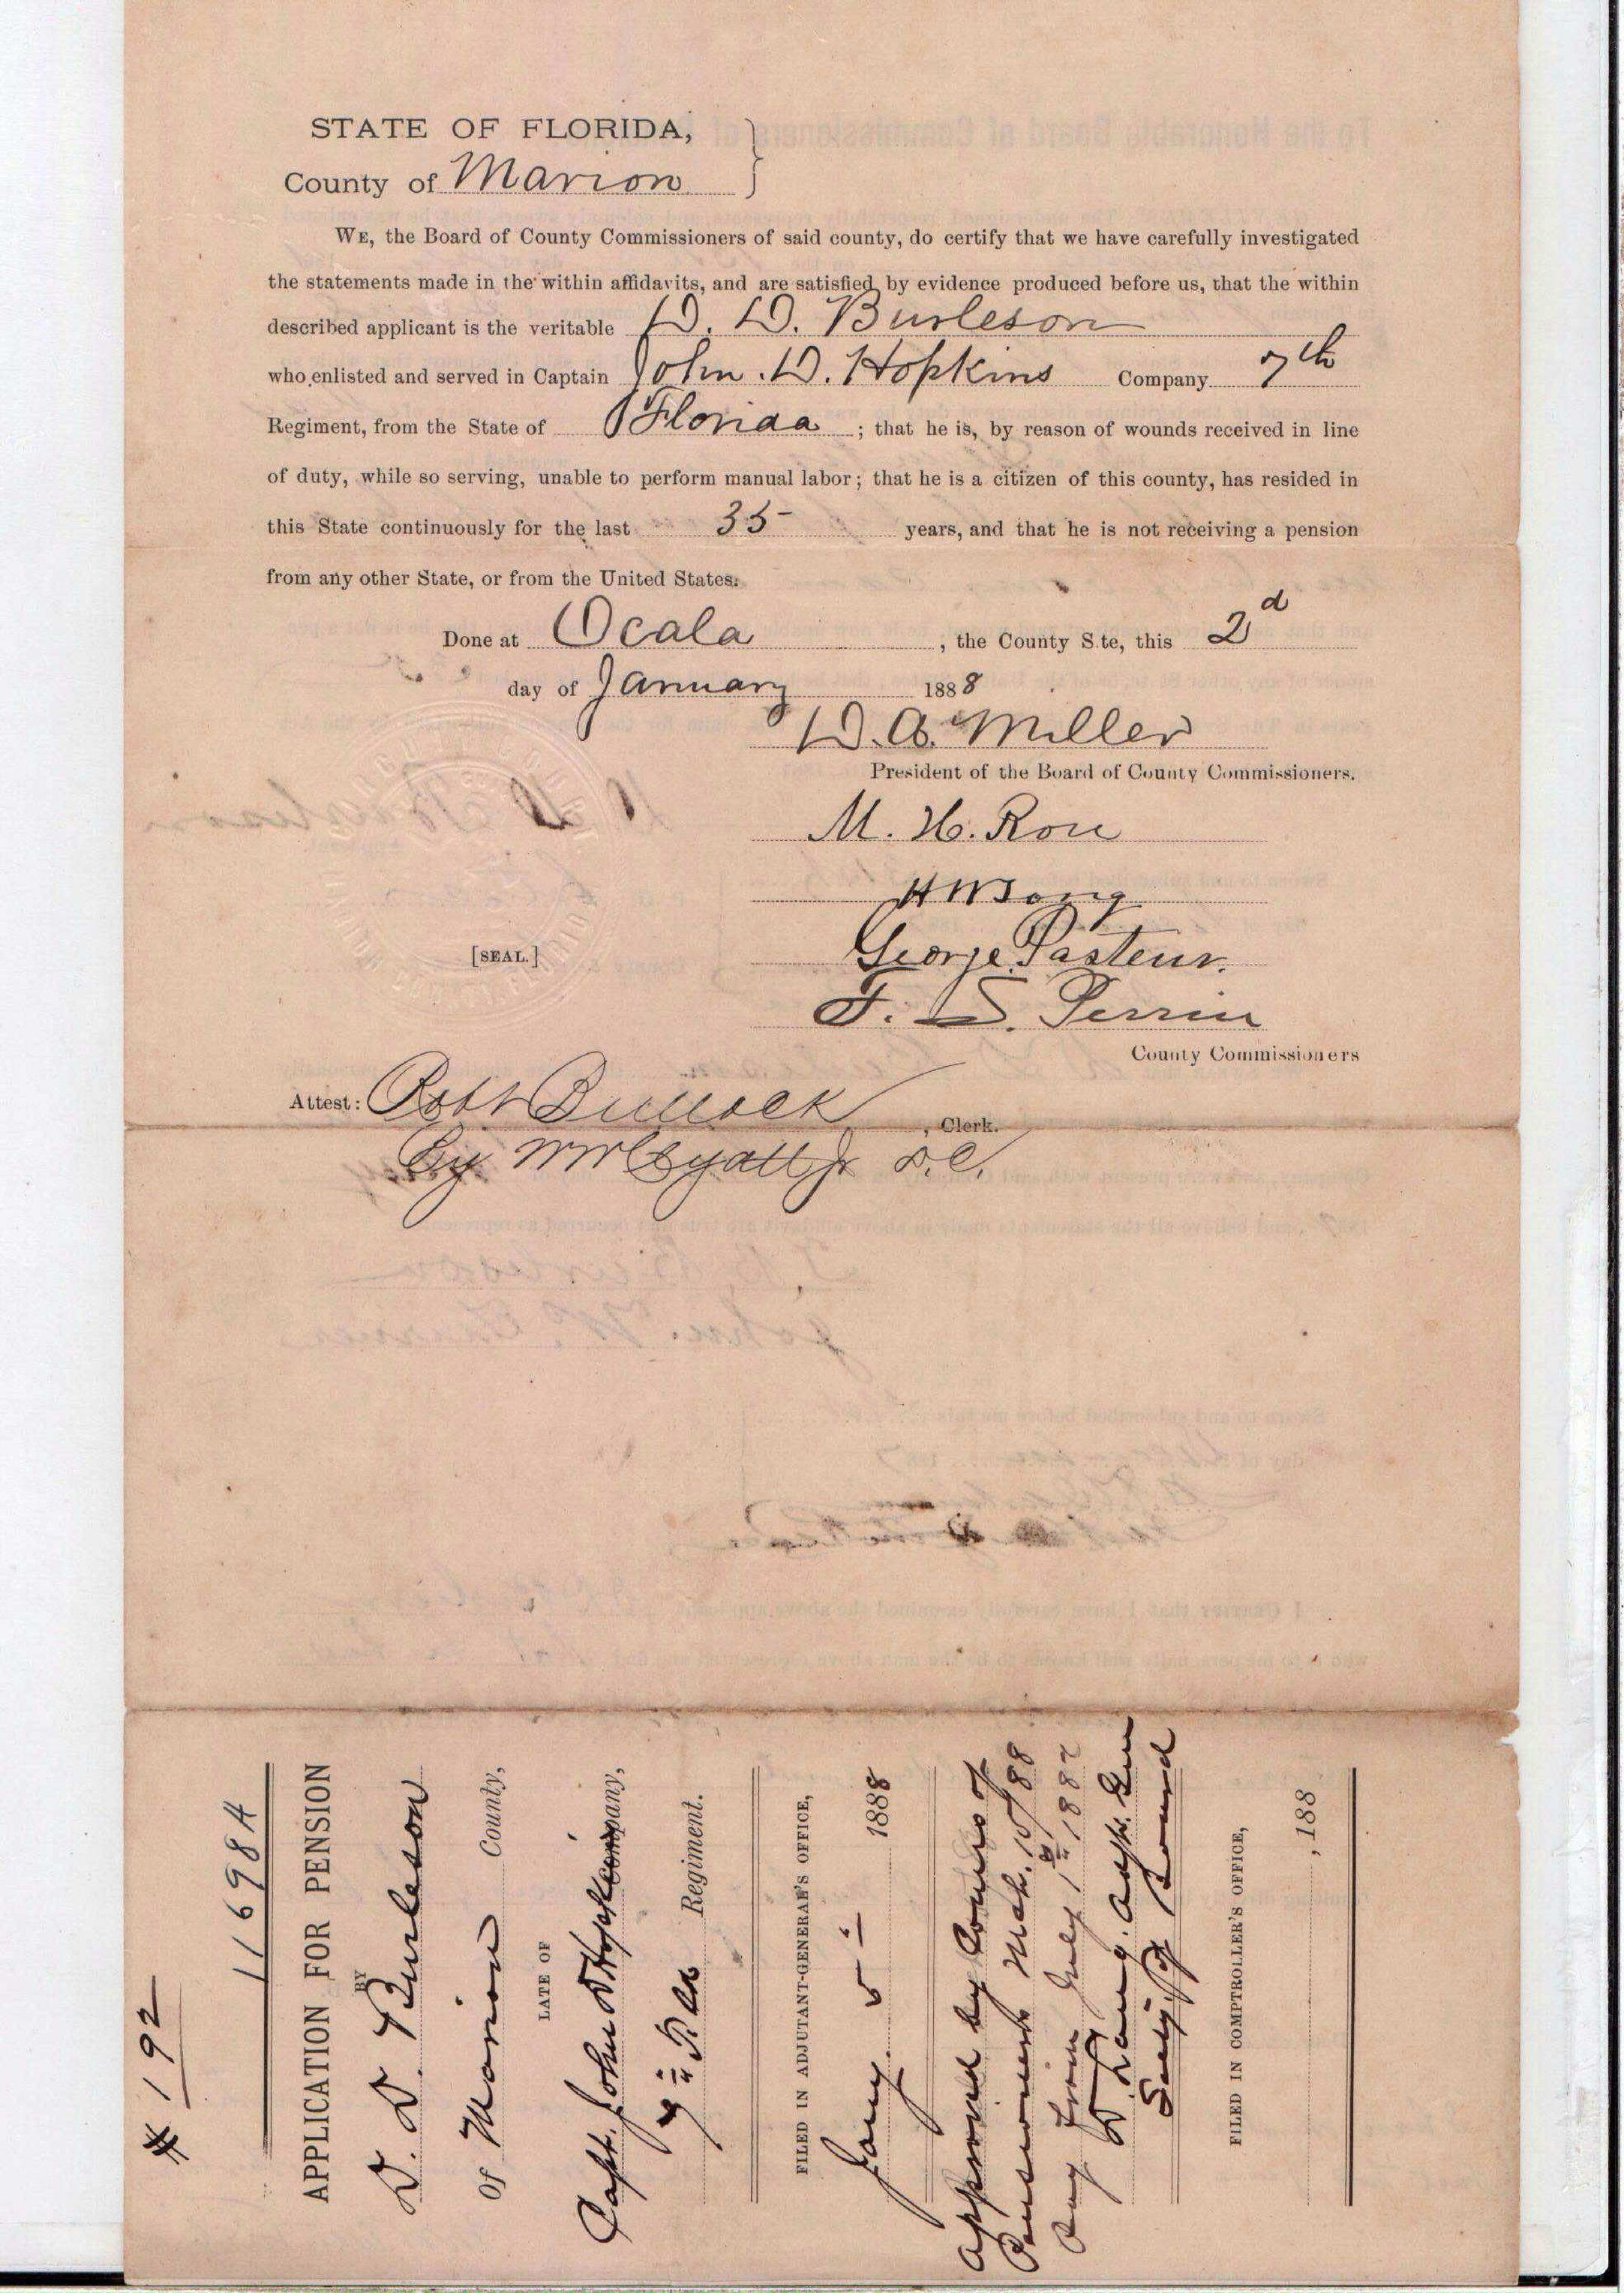 STATE OF FLORIDA,
County of Marion
WE, the Board of County Commissioners of said county, do certify that we have carefully investigated
the statements made in the within affidavits, and are satisfied by evidence produced before us, that the within
described applicant is the veritable D. D. Burleson
who enlisted and served in Captain John. D. Hopkins Company 7th
Regiment, from the State of Florida ; that he is, by reason of wounds received in line
of duty, while so serving, unable to perform manual labor; that he is a citizen of this county, has resided in
this State continuously for the last 35 years, and that he is not receiving a pension
from any other State, or from the United States.
Done at Ocala , the County S te, this 2d
day of January 1888
D. A. Miller
President of the Board of County Commissioners.
M. H. Rou
H W Long
[SEAL.]
George Pasteur.
F. S. Perrin
County Commissioners
Attest: Robt Bullock , Clerk.
By D.C.
# 192
11698A
APPLICATION FOR PENSION
BY
D. D. Burleson
Of Marion County,
LATE OF
Capt. John D Hopkins Company,
7th Regiment.
FILED IN ADJUTANT-GENERAL'S OFFICE,
Jany. 1888
Approved by Comrs of
Pensioners Mch. 10/88
Pay from July 1st 1887
D. Lang. Adjt. Gen
Secy. Board
FILED IN COMPTROLLER'S OFFICE,
, 188